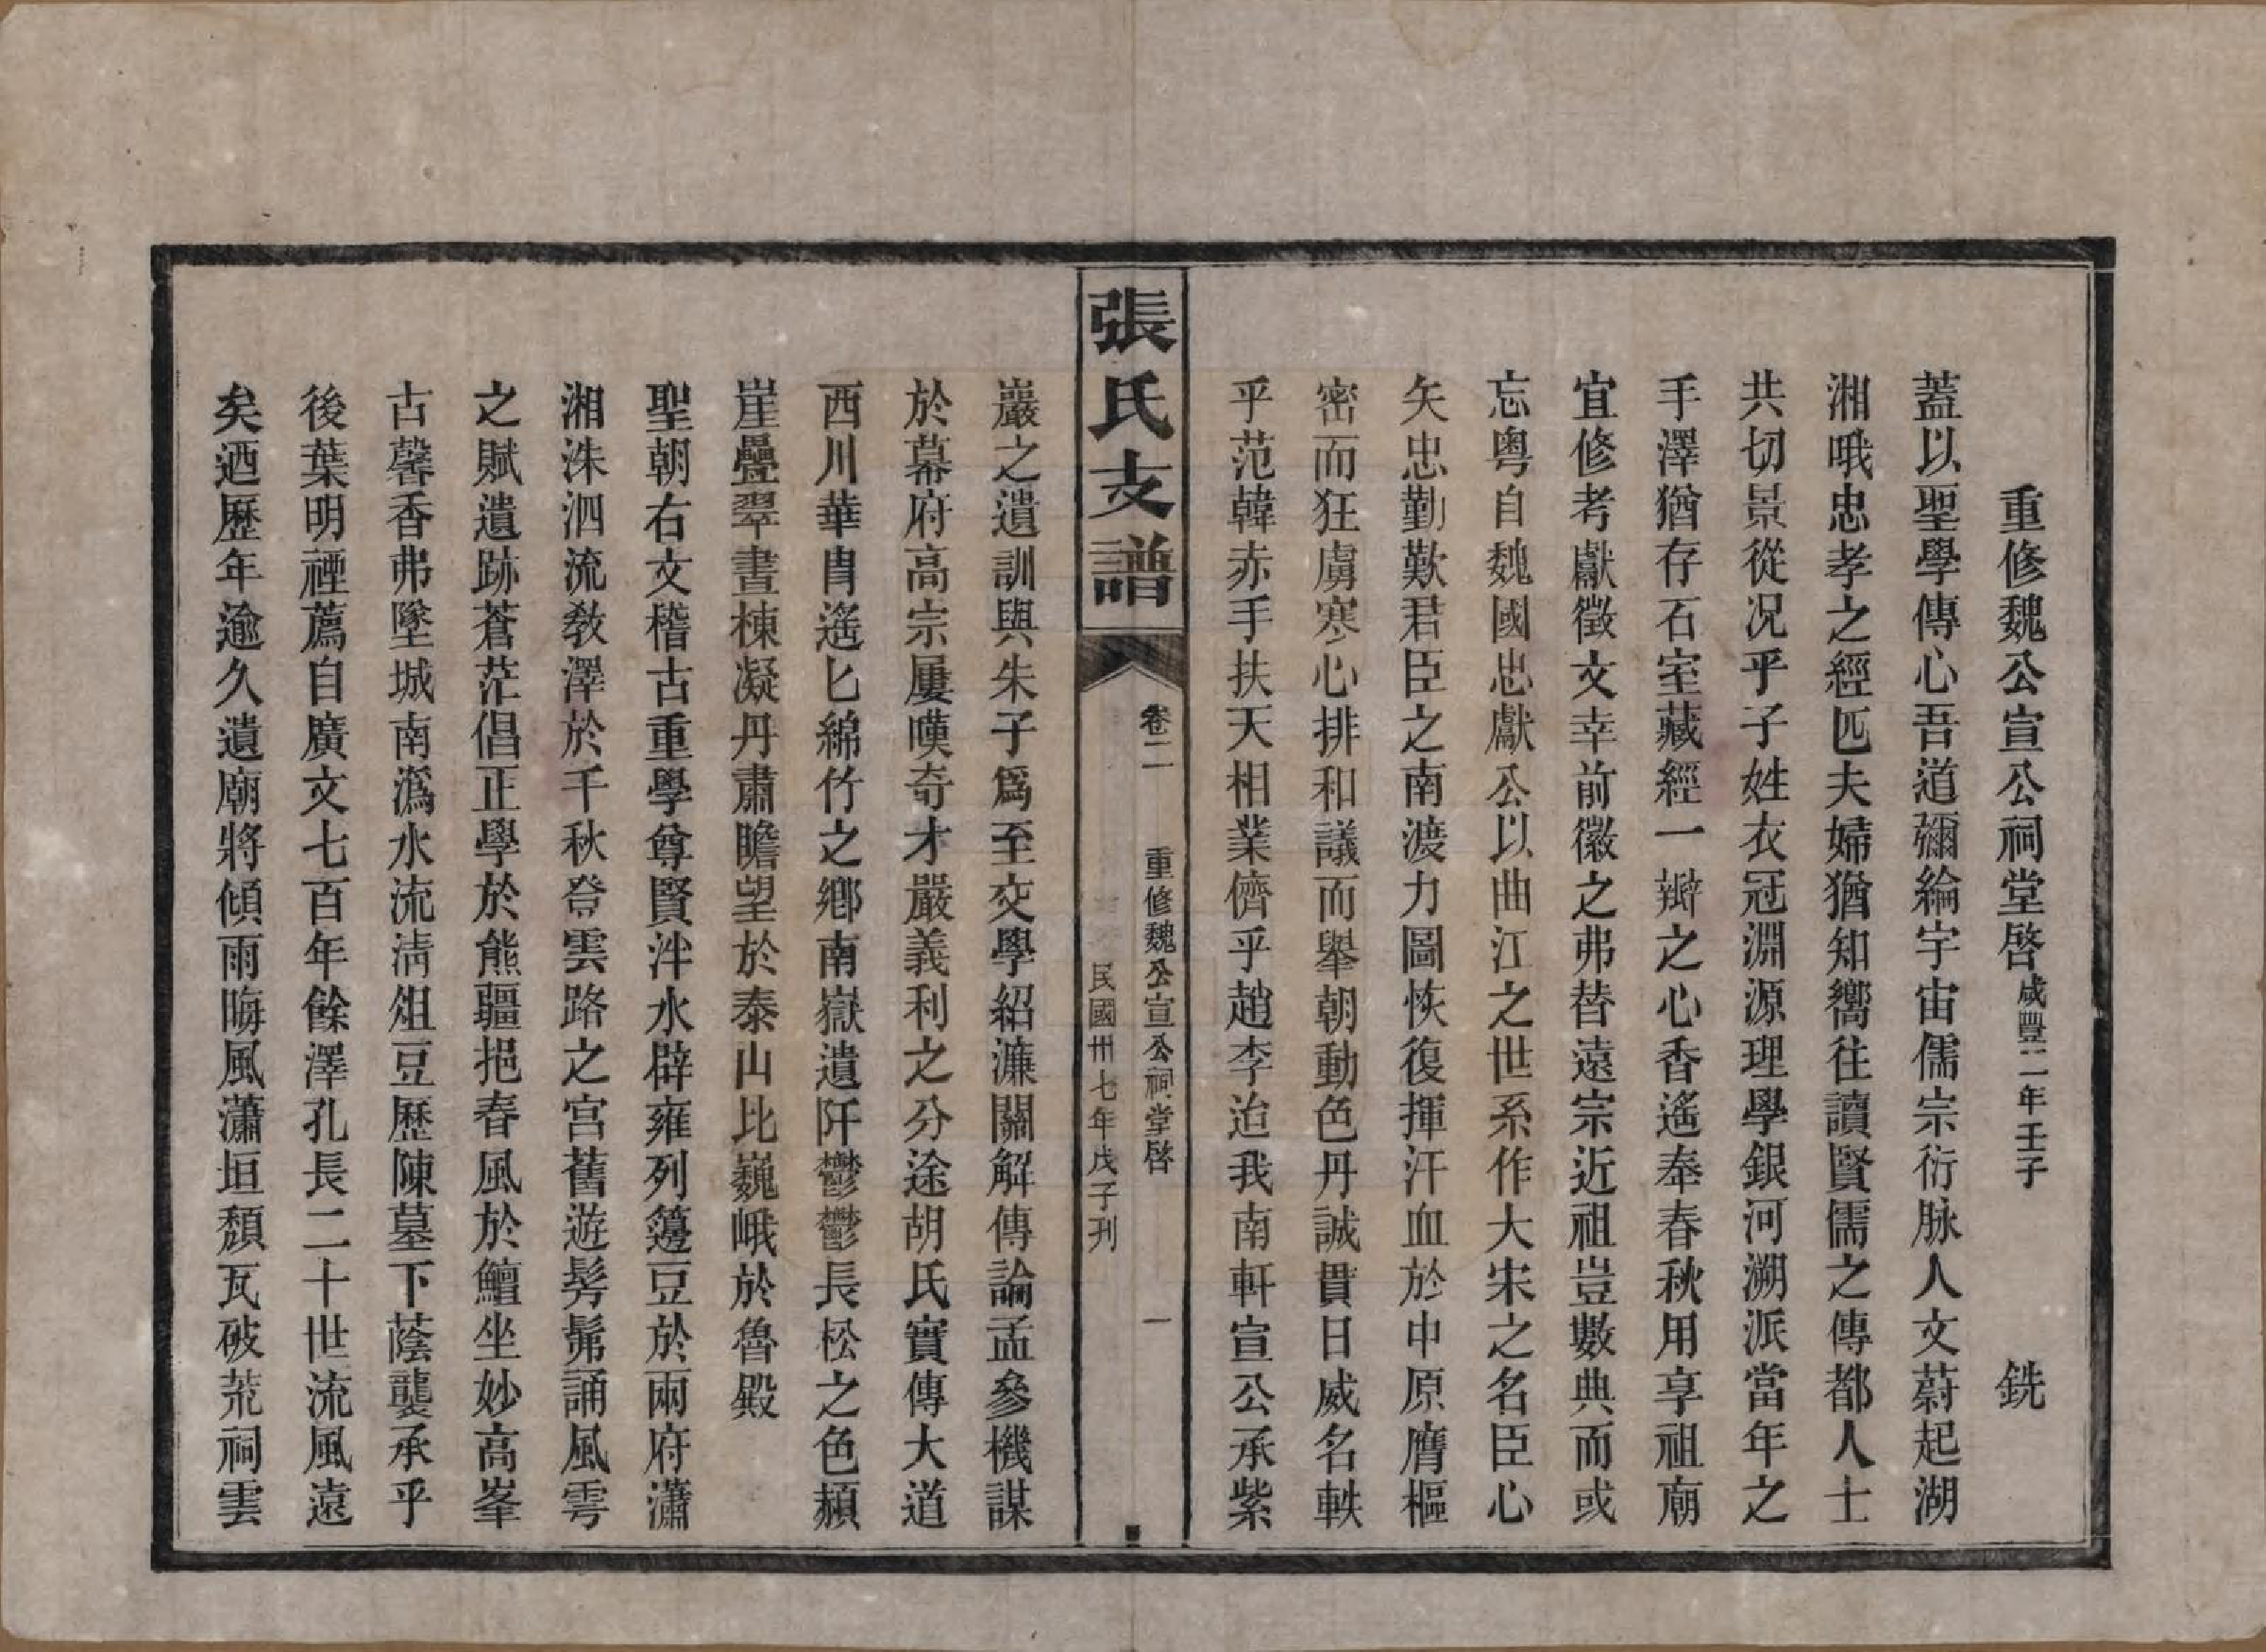 重修魏公宣公祠堂啓咸豐二年壬子 銑
蓋以聖學傳心吾道彌綸宇宙儒宗衍脉人文蔚起湖
湘哦忠孝之經匹夫婦猶知嚮往讀賢儒之傳都人士
共切景從况乎子姓衣冠淵源理學銀河溯派當年之
手澤猶存石室藏經一瓣之心香遙奉春秋用享祖廟
宜修考獻徵文幸前徽之弗替遠宗近祖豈數典而或
忘粤自魏國忠獻公以曲江之世系作大宋之名臣心
矢忠勤歎君臣之南渡力圖恢復揮汗血於中原膺樞
密而狂虜寒心排和議而舉朝動色丹誠貫日威名軼
乎范韓赤手扶天相業儕乎趙李迨我南軒宣公承紫
張氏支譜
卷二 重修魏公宣公祠堂啓 一
民國卅七年戊子刋
巖之遺訓與朱子爲至交學紹濂關解傳論孟參機謀
於幕府高宗屢嘆奇才嚴義利之分途胡氏實傳大道
西川華胄遙匕綿竹之鄉南嶽遺阡鬱鬱長松之色頫
崖疊翠畫棟凝丹肅瞻望於泰山比巍峨於魯殿
聖朝右文稽古重學尊賢泮水辟雍列籩豆於兩府瀟
湘洙泗流敎澤於千秋登雲路之宮舊遊髣髴誦風雩
之賦遺跡蒼茫倡正學於熊疆挹春風於鱣坐妙高峯
古馨香弗墜城南潙水流淸俎豆歷陳墓下蔭襲承乎
後葉明禋薦自廣文七百年餘澤孔長二十世流風遠
矣迺歷年逾久遺廟將傾雨晦風瀟垣頽瓦破荒祠雲